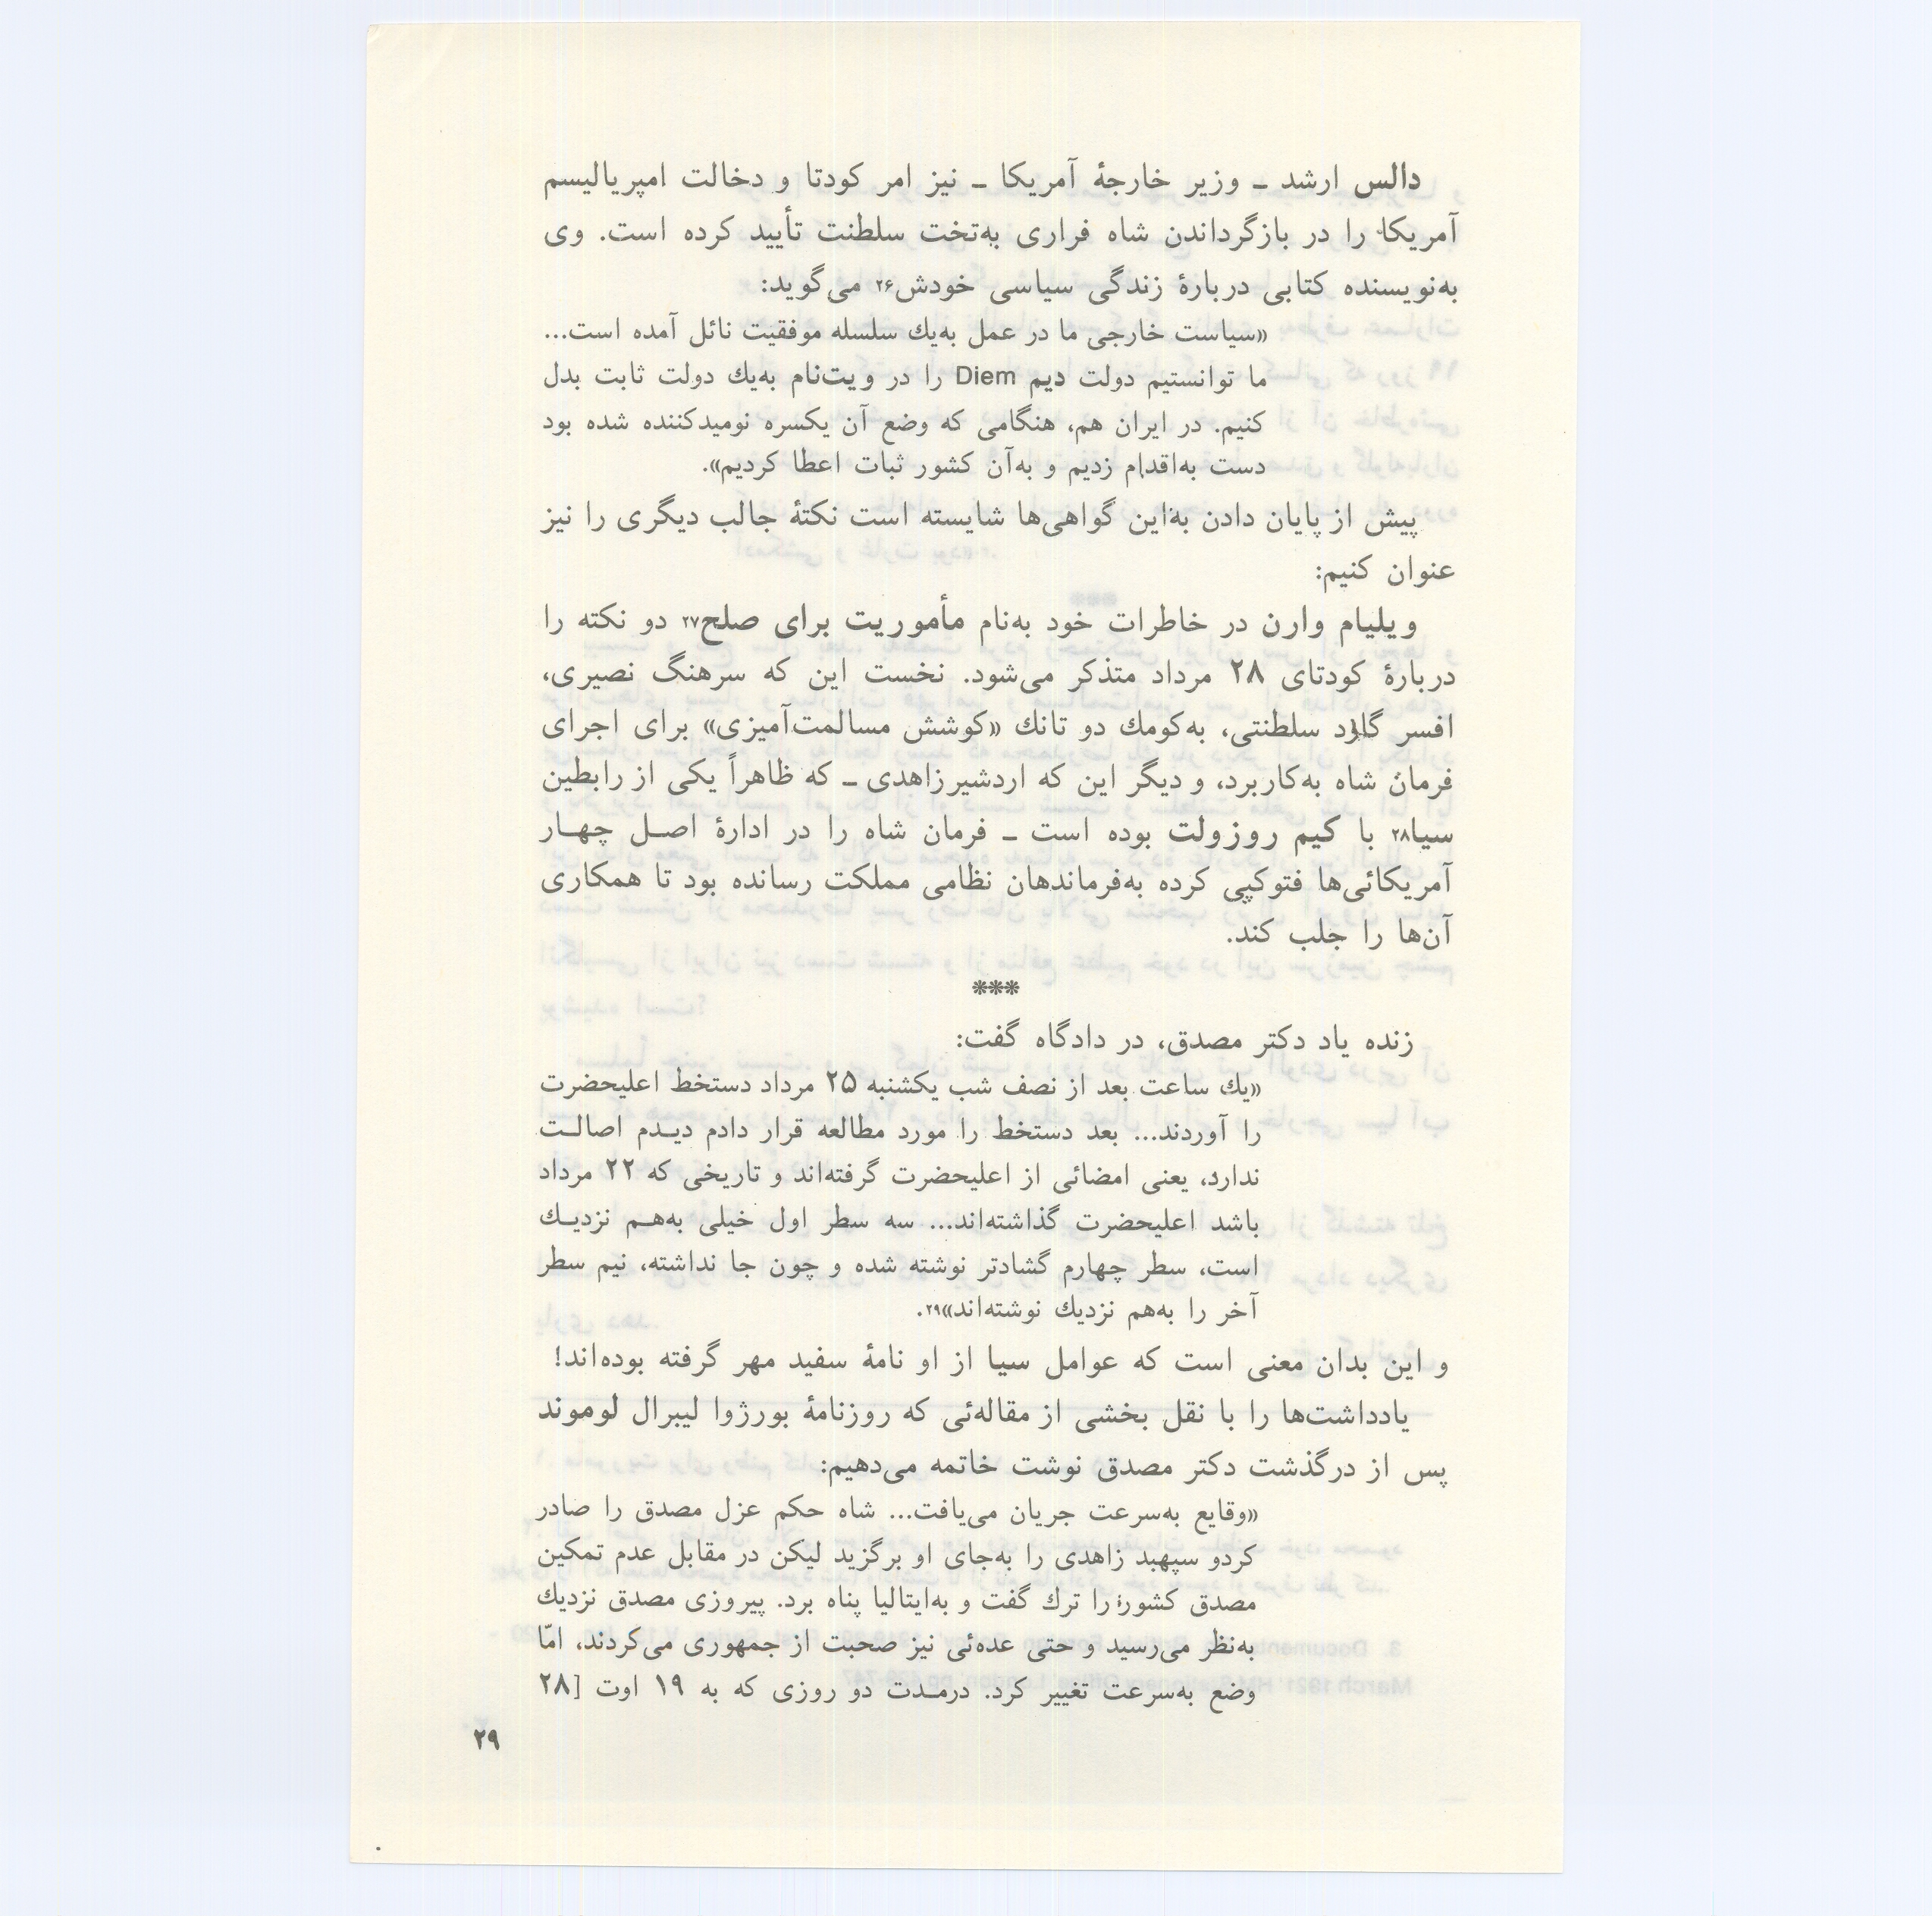 دالس ارشد ـ وزیر خارجهٔ آمریکا ـ نیز امر کودتا و دخالت امپریالیسم
آمریکا را در بازگرداندن شاه فراری به‌تخت سلطنت تأیید کرده است. وی
به‌نویسنده کتابی دربارهٔ زندگی سیاسی خودش۲۶ می‌گوید:
«سیاست خارجی ما در عمل به‌یك سلسله موفقیت نائل آمده است...
ما توانستیم دولت دیم Diem را در ویت‌نام به‌یك دولت ثابت بدل
کنیم. در ایران هم، هنگامی که وضع آن یکسره نومیدکننده شده بود
دست به‌اقدام زدیم و به‌آن کشور ثبات اعطا کردیم».
پیش از پایان دادن به‌این گواهی‌ها شایسته است نکتهٔ جالب دیگری را نیز
عنوان کنیم:
ویلیام وارن در خاطرات خود به‌نام مأموریت برای صلح۲۷ دو نکته را
دربارهٔ کودتای ۲۸ مرداد متذکر می‌شود. نخست این که سرهنگ نصیری،
افسر گارد سلطنتی، به‌کومك دو تانك «کوشش مسالمت‌آمیزی» برای اجرای
فرمان شاه به‌کاربرد، و دیگر این که اردشیرزاهدی ـ که ظاهراً یکی از رابطین
سیا۲۸ با کیم روزولت بوده است ـ فرمان شاه را در ادارهٔ اصـل چهـار
آمریکائی‌ها فتوکپی کرده به‌فرماندهان نظامی مملکت رسانده بود تا همکاری
آن‌ها را جلب کند.
***
زنده یاد دکتر مصدق، در دادگاه گفت:
«یك ساعت بعد از نصف شب یکشنبه ۲۵ مرداد دستخط اعلیحضرت
را آوردند... بعد دستخط را مورد مطالعه قرار دادم دیـدم اصالـت
ندارد، یعنی امضائی از اعلیحضرت گرفته‌اند و تاریخی که ۲۲ مرداد
باشد اعلیحضرت گذاشته‌اند... سه سطر اول خیلی به‌هـم نزدیـك
است، سطر چهارم گشادتر نوشته شده و چون جا نداشته، نیم سطر
آخر را به‌هم نزدیك نوشته‌اند»۲۹.
و این بدان معنی است که عوامل سیا از او نامهٔ سفید مهر گرفته بوده‌اند!
یادداشت‌ها را با نقل بخشی از مقاله‌ئی که روزنامهٔ بورژوا لیبرال لوموند
پس از درگذشت دکتر مصدق نوشت خاتمه می‌دهیم:
«وقایع به‌سرعت جریان می‌یافت... شاه حکم عزل مصدق را صادر
کردو سپهبد زاهدی را به‌جای او برگزید لیکن در مقابل عدم تمکین
مصدق کشور را ترك گفت و به‌ایتالیا پناه برد. پیروزی مصدق نزدیك
به‌نظر می‌رسید و حتی عده‌ئی نیز صحبت از جمهوری می‌کردند، امّا
وضع به‌سرعت تغییر کرد. درمـدت دو روزی که به ۱۹ اوت [۲۸
۲۹